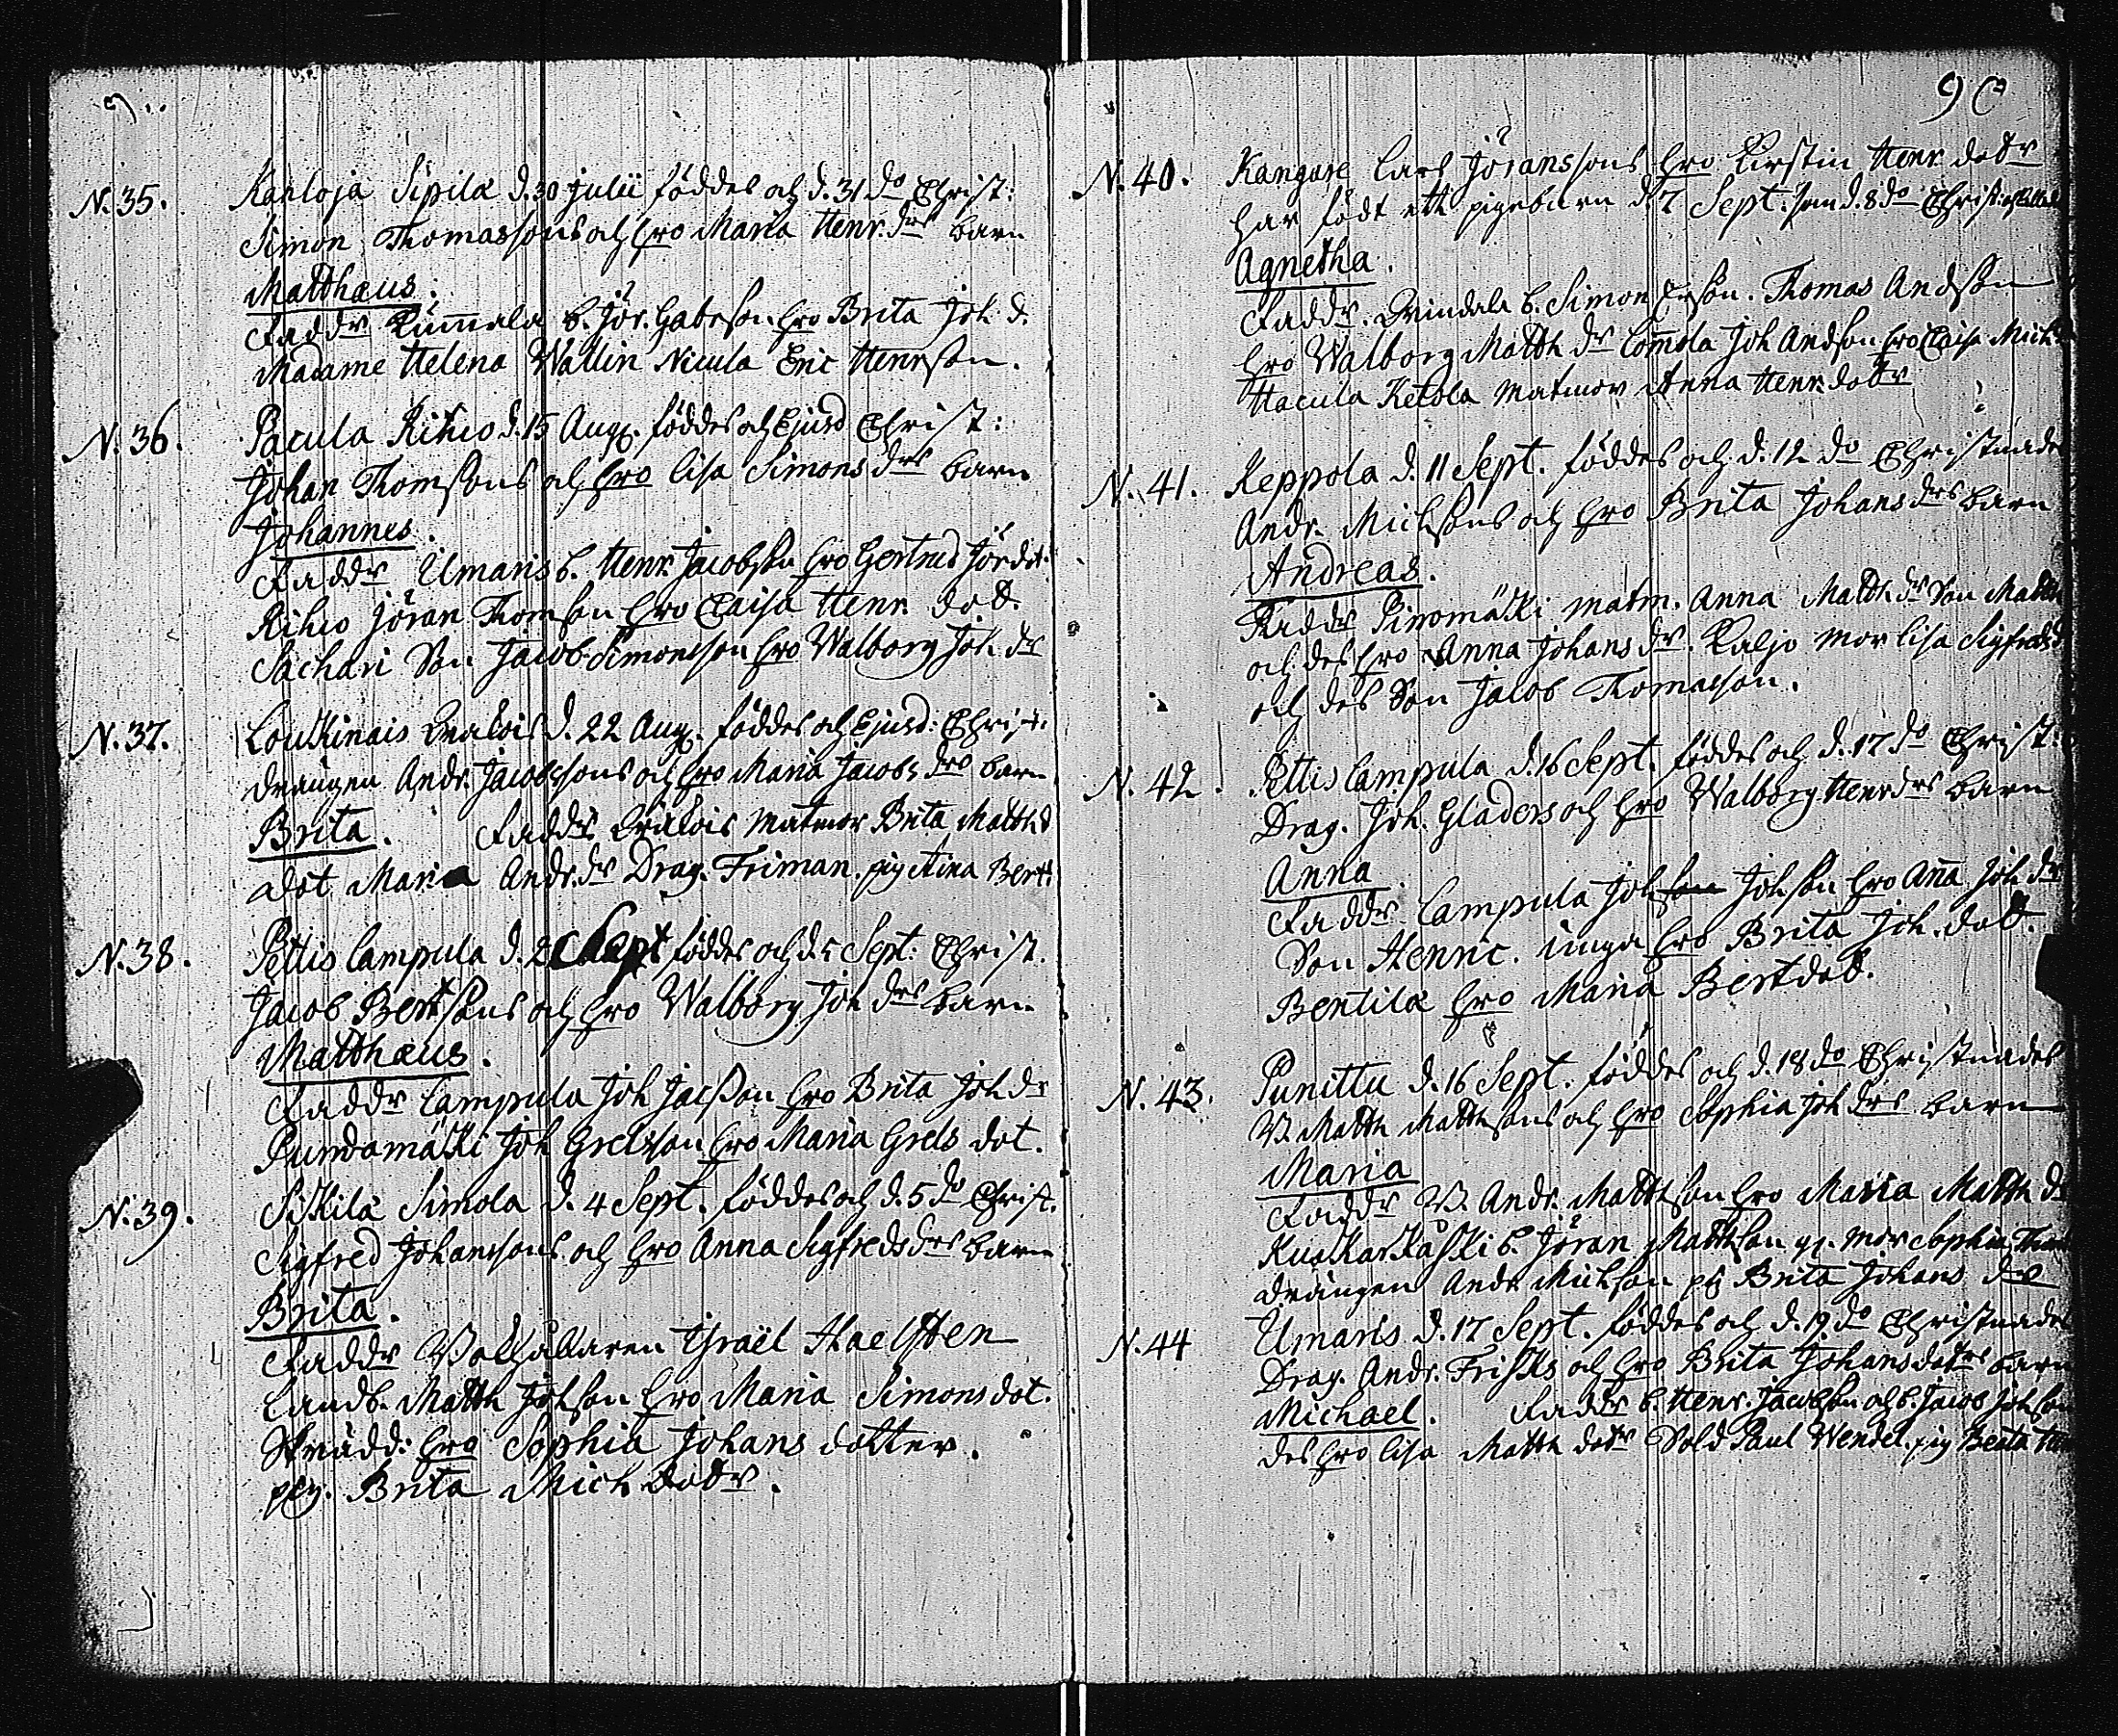 90
N. 35. Karloja Sipilä d. 30 Julii föddes och d. 31 do Christ:
Simon Thomassons och hro Maria Henr. drs barn
Matthæus.
Faddr Kumala B. Jör. Gabrson hro Brita Joh d.
Madame Helena Wallin Nicula Eric Henrson.
N. 36. Pacula Rihio d. 15 Aug. föddes och Ejusd Christ:
Johan Thomsons och hro Lisa Simons drs barn
Johannes.
Faddr Umaris B. Henr. Jacobson hro Gertrud Jör dot.
Rihio Jöran Thomson hro Caisa Henr. dot.
Sachari Son Jacob Simonsson hro Walborg Joh dr
N. 37. d. 22 Aug. föddes och Ejusd: Christ.
drängen Andr. Jacobssons och hro Maria Jacobs drs barn
Brita. Faddr matmor Brita Matth d
dot Maria Andr. dr Drag. Friman. pig Stina Bert.
N. 38. Pettis Campula d. 2 Sept föddes och d. 5 Sept: Christ.
Jacob Bertsons och hro Walborg Joh drs barn
Matthæus.
Faddr Campula Joh Jacson hro Brita Joh dr
Pundamäki Joh Grelsson hro Maria Grels dot.
N. 39. Sikilä Simola d. 4 Sept. föddes och d. 5 do Christ.
Sigfred Johanssons och hro Anna Sigfreds drs barn
Brita.
Faddr Israël
Landb. Matth Johson hro Maria Simons dot.
Skrädd: hro Sophia Johans dotter.
pig. Brita Mich dotr.
N. 40. Kangare Lars Jöranssons hro Kirstin Henr. dotr
har födt ett pigebarn d. 7 Sept. som d. 8 do Christ:
Agnetha.
Faddr. B. Simon Thomas Andson
hro Walborg Matth dr Comola Joh Andson hro Caisa Mich
Hacula Ketola matmor Anna Henr. dotr
N. 41. Keppola d. 11 Sept. föddes och d. 12 do Christnades
Andr. Michsons och hro Brita Johans drs barn
Andreas.
Faddr matm. Anna Matth dr Son Matth
och des hro Anna Johans dr. Kaljo mor Lisa Sigfreds d
och des Son Jacob Thomasson.
N. 42. Pettis Campula d. 16 Sept. föddes och d. 17 do Christ:
Drag. Joh. Gladers och hro Walborg Henr drs barn
Anna
Faddr Campula Joh son Johson hro Aña Joh dr
Son Henric. unga hro Brita Joh. dot.
Bentilä hro Maria Bert dot.
N. 43. Punittu d. 16 Sept. föddes och d. 18 do Christnades
B. Matth Mattsons och hro Sophia Joh drs barn
Maria
Faddr B. Andr. Mattson hro Maria Matth d
B. Jöran Mattson gl. mor Sophia Thom
drängen Andr Michson pig Brita Johans dr
N. 44 Umaris d. 17 Sept. föddes och d. 19 do Christnades
Drag. Andr. Frisks och hro Brita Johans dotrs barn
Michael. Faddr B. Henr. Jacobson och B. Jacob Johson
des hro Lisa Matth dotr Sold Paul Wendel. pig Beata